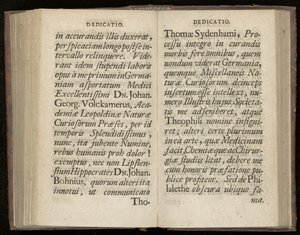 DEDICATIO.
in accurandis illis duxerat,
perspiciam longo postse in-
tervallo relinquere. Vide-
rant idem stupendi laboris
opus à me primum in Germa-
niam asportatum Medici
Excellentissimi DN. Johan.
Georg. Volckamerus, Aca-
demiæ Leopoldinæ Naturæ
Curiosorum Præses, per id
temporis Splendidissimus,
nunc, ità jubente Numine,
rebus humanis proh dolor!
exemptus, nec non Lipsien-
sium Hippocrates DN. Johan.
Bohnius, quorum alter ità
innotui, ut communicato
Tho-
DEDICATIO.
Thomæ Sydenhami, Pro-
cessu integro in curandis
morbis fere omnibus, quem
nondum viderat Germania,
eumque Miscellaneis Na-
turæ Curiosorum, deinceps
insertum esse intellexi, nu-
mero Illustris hujus Societa-
tis me adscriberet, atque
Theophili nomine insigni-
ret; alteri certe plurimum
in ea arte, quæ Medicinam
facit Chemiæque ac Chirur-
giæ studiis litat, debere me
cum honoris præfatione pu-
blice profiteor. Sed de Phi-
lalethe obscura ubique fa-
ma.